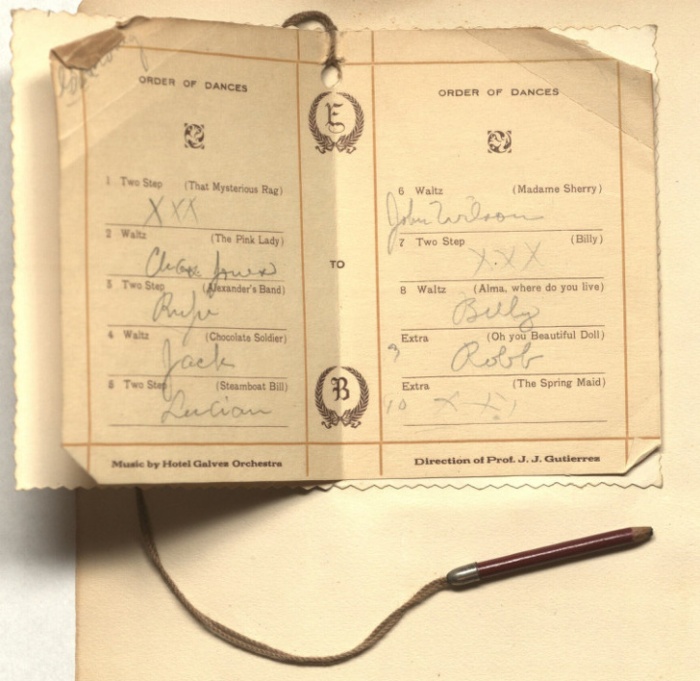 ORDER OF DANCES
1 Two Step (That Mysterious Rag)
XXX
2 Waltz (The Pink Lady)
Jones
3 Two Step (Alexander's Band)
Rufe
4 Waltz (Chocolate Soldier)
Jack
5 Two Step (Steamboat Bill)
Lucian
Music by Hotel Galvez Orchestra
E
TO
B
ORDER OF DANCES
6 Waltz (Madame Sherry)
John Wilson
7 Two Step (Billy)
X.X.X
8 Waltz (Alma, where do you live)
Billy
9 Extra (Oh you Beautiful Doll)
Robb
10 Extra (The Spring Maid)
X X
Direction of Prof. J. J. Gutierrez